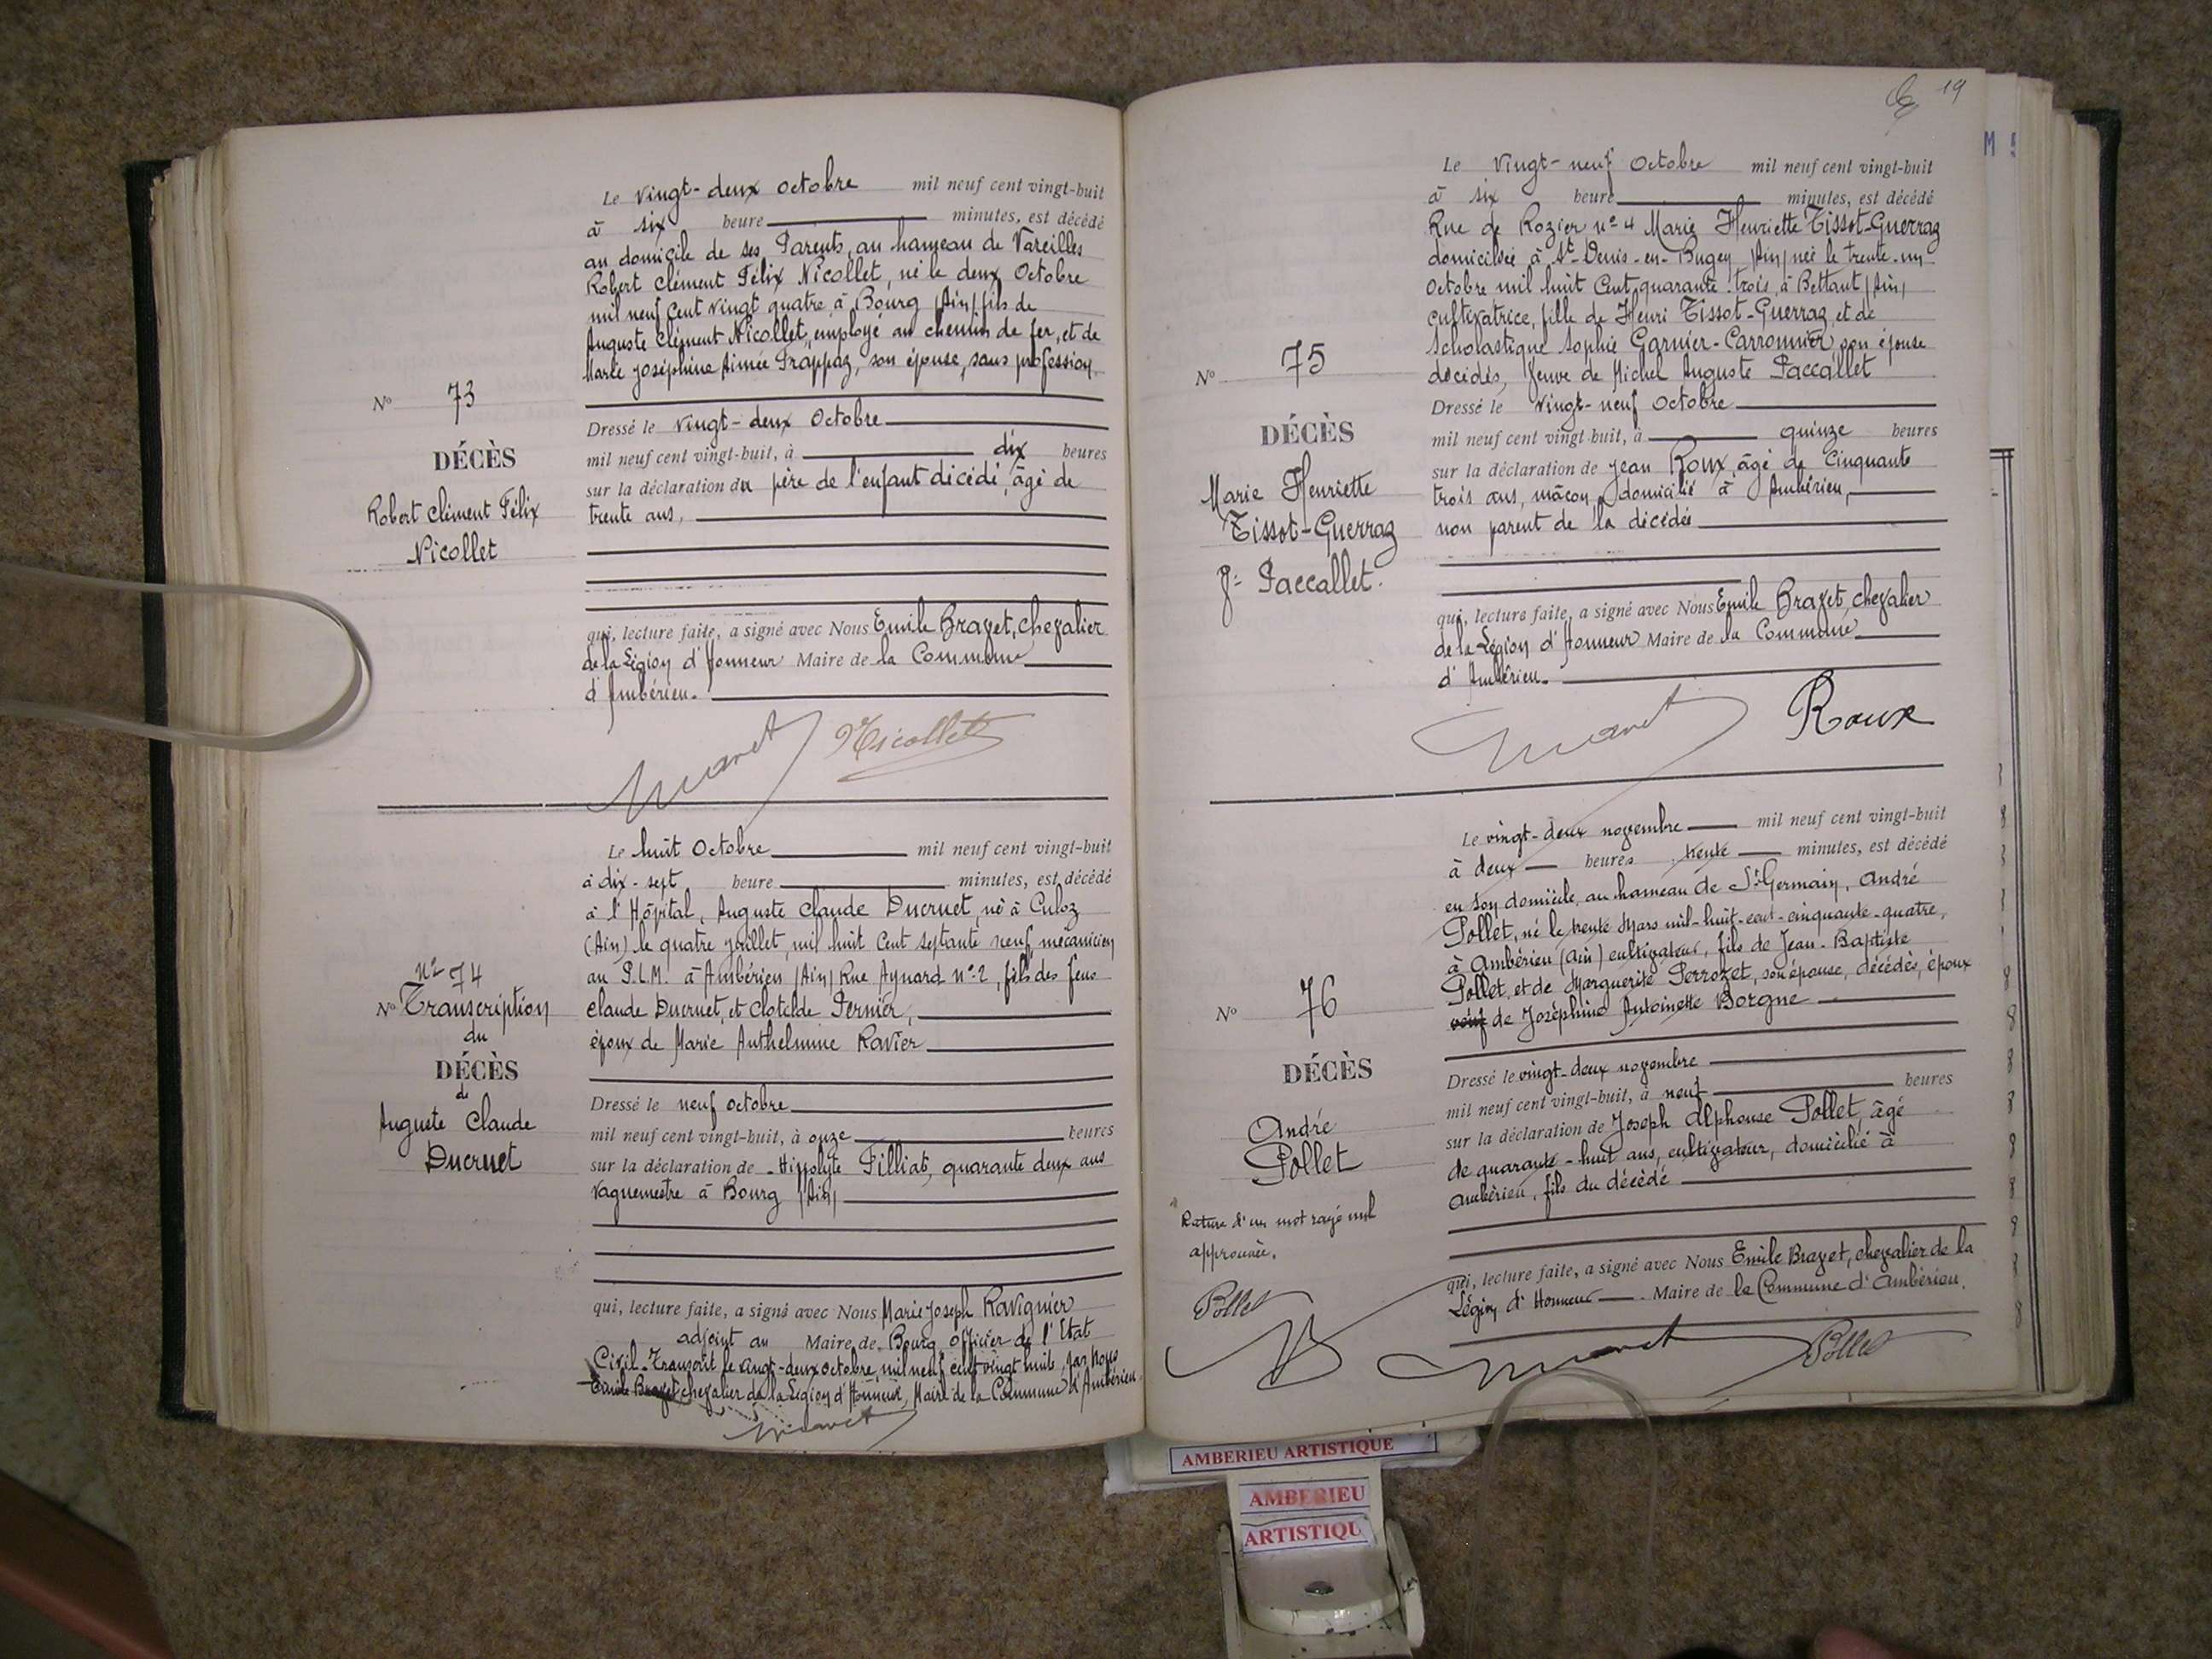 Le vingt-deux octobre mil neuf cent vingt-huit
à six heure minutes, est décédé
au domicile de ses Parents, au hameau de Vareilles
Robert Clément Félix Nicollet, né le deux Octobre
mil neuf Cent vingt quatre à Bourg (Ain) fils de
Auguste Clément Nicollet, employé au chemin de fer, et de
Marie Joséphine Aimée Frappaz, son épouse, sans profession.
Dressé le vingt-deux Octobre
mil neuf cent vingt-huit, à dix heures
sur la déclaration du père de l'enfant décédé, âgé de
trente ans,
qui, lecture faite, a signé avec Nous Emile Bravet, chevalier
de la Légion d'Honneur Maire de la Commune
d'Ambérieu.
Nicollet
No 73
DÉCÈS
Robert Clément Félix
Nicollet
Le huit Octobre mil neuf cent vingt-huit
à dix-sept heure minutes, est décédé
à l'Hôpital, Auguste Claude Ducruet, né à Culoz
(Ain) le quatre juillet, mil huit Cent septante neuf, mécanicien
au P.L.M. à Ambérieu (Ain) Rue Aynard n° 2, fils des feus
Claude Ducruet, et Clotilde Pernier,
époux de Marie Anthelmine Ravier
Dressé le neuf octobre
mil neuf cent vingt-huit, à onze heures
sur la déclaration de Hippolyte Filliat, quarante deux ans
vaguemestre à Bourg (Ain)
qui, lecture faite, a signé avec Nous Marie Joseph Ravignier
adjoint au Maire de Bourg Officier de l'Etat
Civil. Transcrit le vingt-deux octobre, mil neuf cent vingt huit, par Nous
Emile Bravet chevalier de la Légion d'Honneur, Maire de la Commune d'Ambérieu.
No 74
No Transcription
du
DÉCÈS
de
Auguste Claude
Ducruet
19
Le Vingt-neuf Octobre mil neuf cent vingt-huit
à six heure minutes, est décédé
Rue de Rozier n° 4 Marie Henriette Tissot-Guerraz
domiciliée à St-Denis-en-Bugey (Ain) née le trente-un
Octobre mil huit Cent quarante-trois, à Bettant (Ain)
cultivatrice, fille de Henri Tissot-Guerraz et de
Scholastique Sophie Garnier-Carronnier, son épouse
décédés, Veuve de Michel Auguste Paccallet
Dressé le vingt-neuf Octobre
mil neuf cent vingt-huit, à quinze heures
sur la déclaration de Jean Roux, âgé de Cinquante
trois ans, mâçon, domicilié à Ambérieu,
non parent de la décédée
qui, lecture faite, a signé avec Nous Emile Bravet, chevalier
de la Légion d'Honneur Maire de la Commune
d'Ambérieu.
Roux
No 75
DÉCÈS
Marie Henriette
Tissot-Guerraz
Ve Paccallet.
Le vingt-deux novembre mil neuf cent vingt-huit
à deux heures trente minutes, est décédé
en son domicile, au hameau de St Germain, André
Pollet, né le trente Mars mil-huit-cent-cinquante-quatre,
à Ambérieu (Ain) cultivateur, fils de Jean-Baptiste
Pollet, et de Marguerite Perrozet, son épouse, décédés, époux
veuf de Joséphine Antoinette Borgne
Dressé le vingt-deux novembre
mil neuf cent vingt-huit, à neuf heures
sur la déclaration de Joseph Alphonse Pollet, âgé
de quarante-huit ans, cultivateur, domicilié à
Ambérieu, fils du décédé
qui, lecture faite, a signé avec Nous Emile Bravet, chevalier de la
Légion d'Honneur Maire de la Commune d'Ambérieu.
Pollet
No 76
DÉCÈS
André
Pollet
Rature d'un mot rayé nul
approuvée.
Pollet
AMBERIEU ARTISTIQUE
AMBERIEU
ARTISTIQU